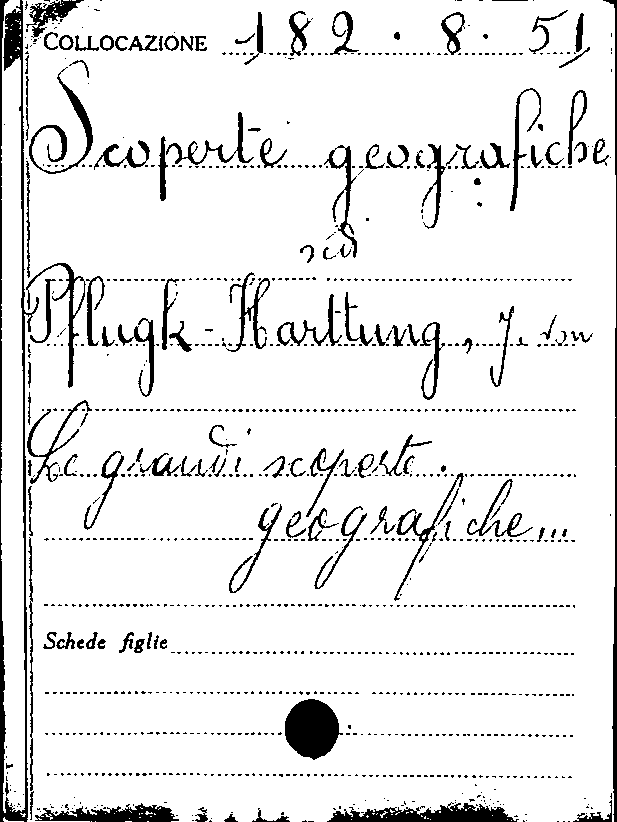 COLLOCAZIONE 182.8.51
Scoperte geografiche
vedi
Pflugk-Harttung, J. von
Le grandi scoperte
geografiche...
Schede figlie